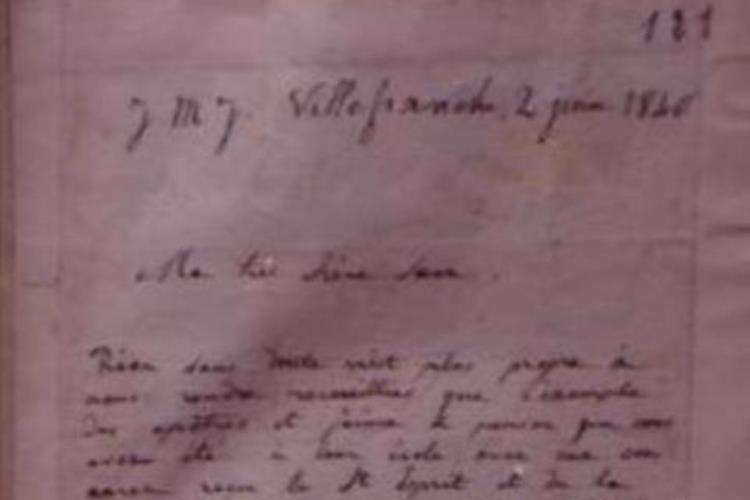 121
J M J. Villefranche, 2 juin 1840
Ma très chère Sœur.
Rien sans doute n'est plus propre à
nous rendre recueillies que l'exemple
des apôtres et j'aime à penser que vous
avez été à leur école avec
reçu le St Esprit et de la